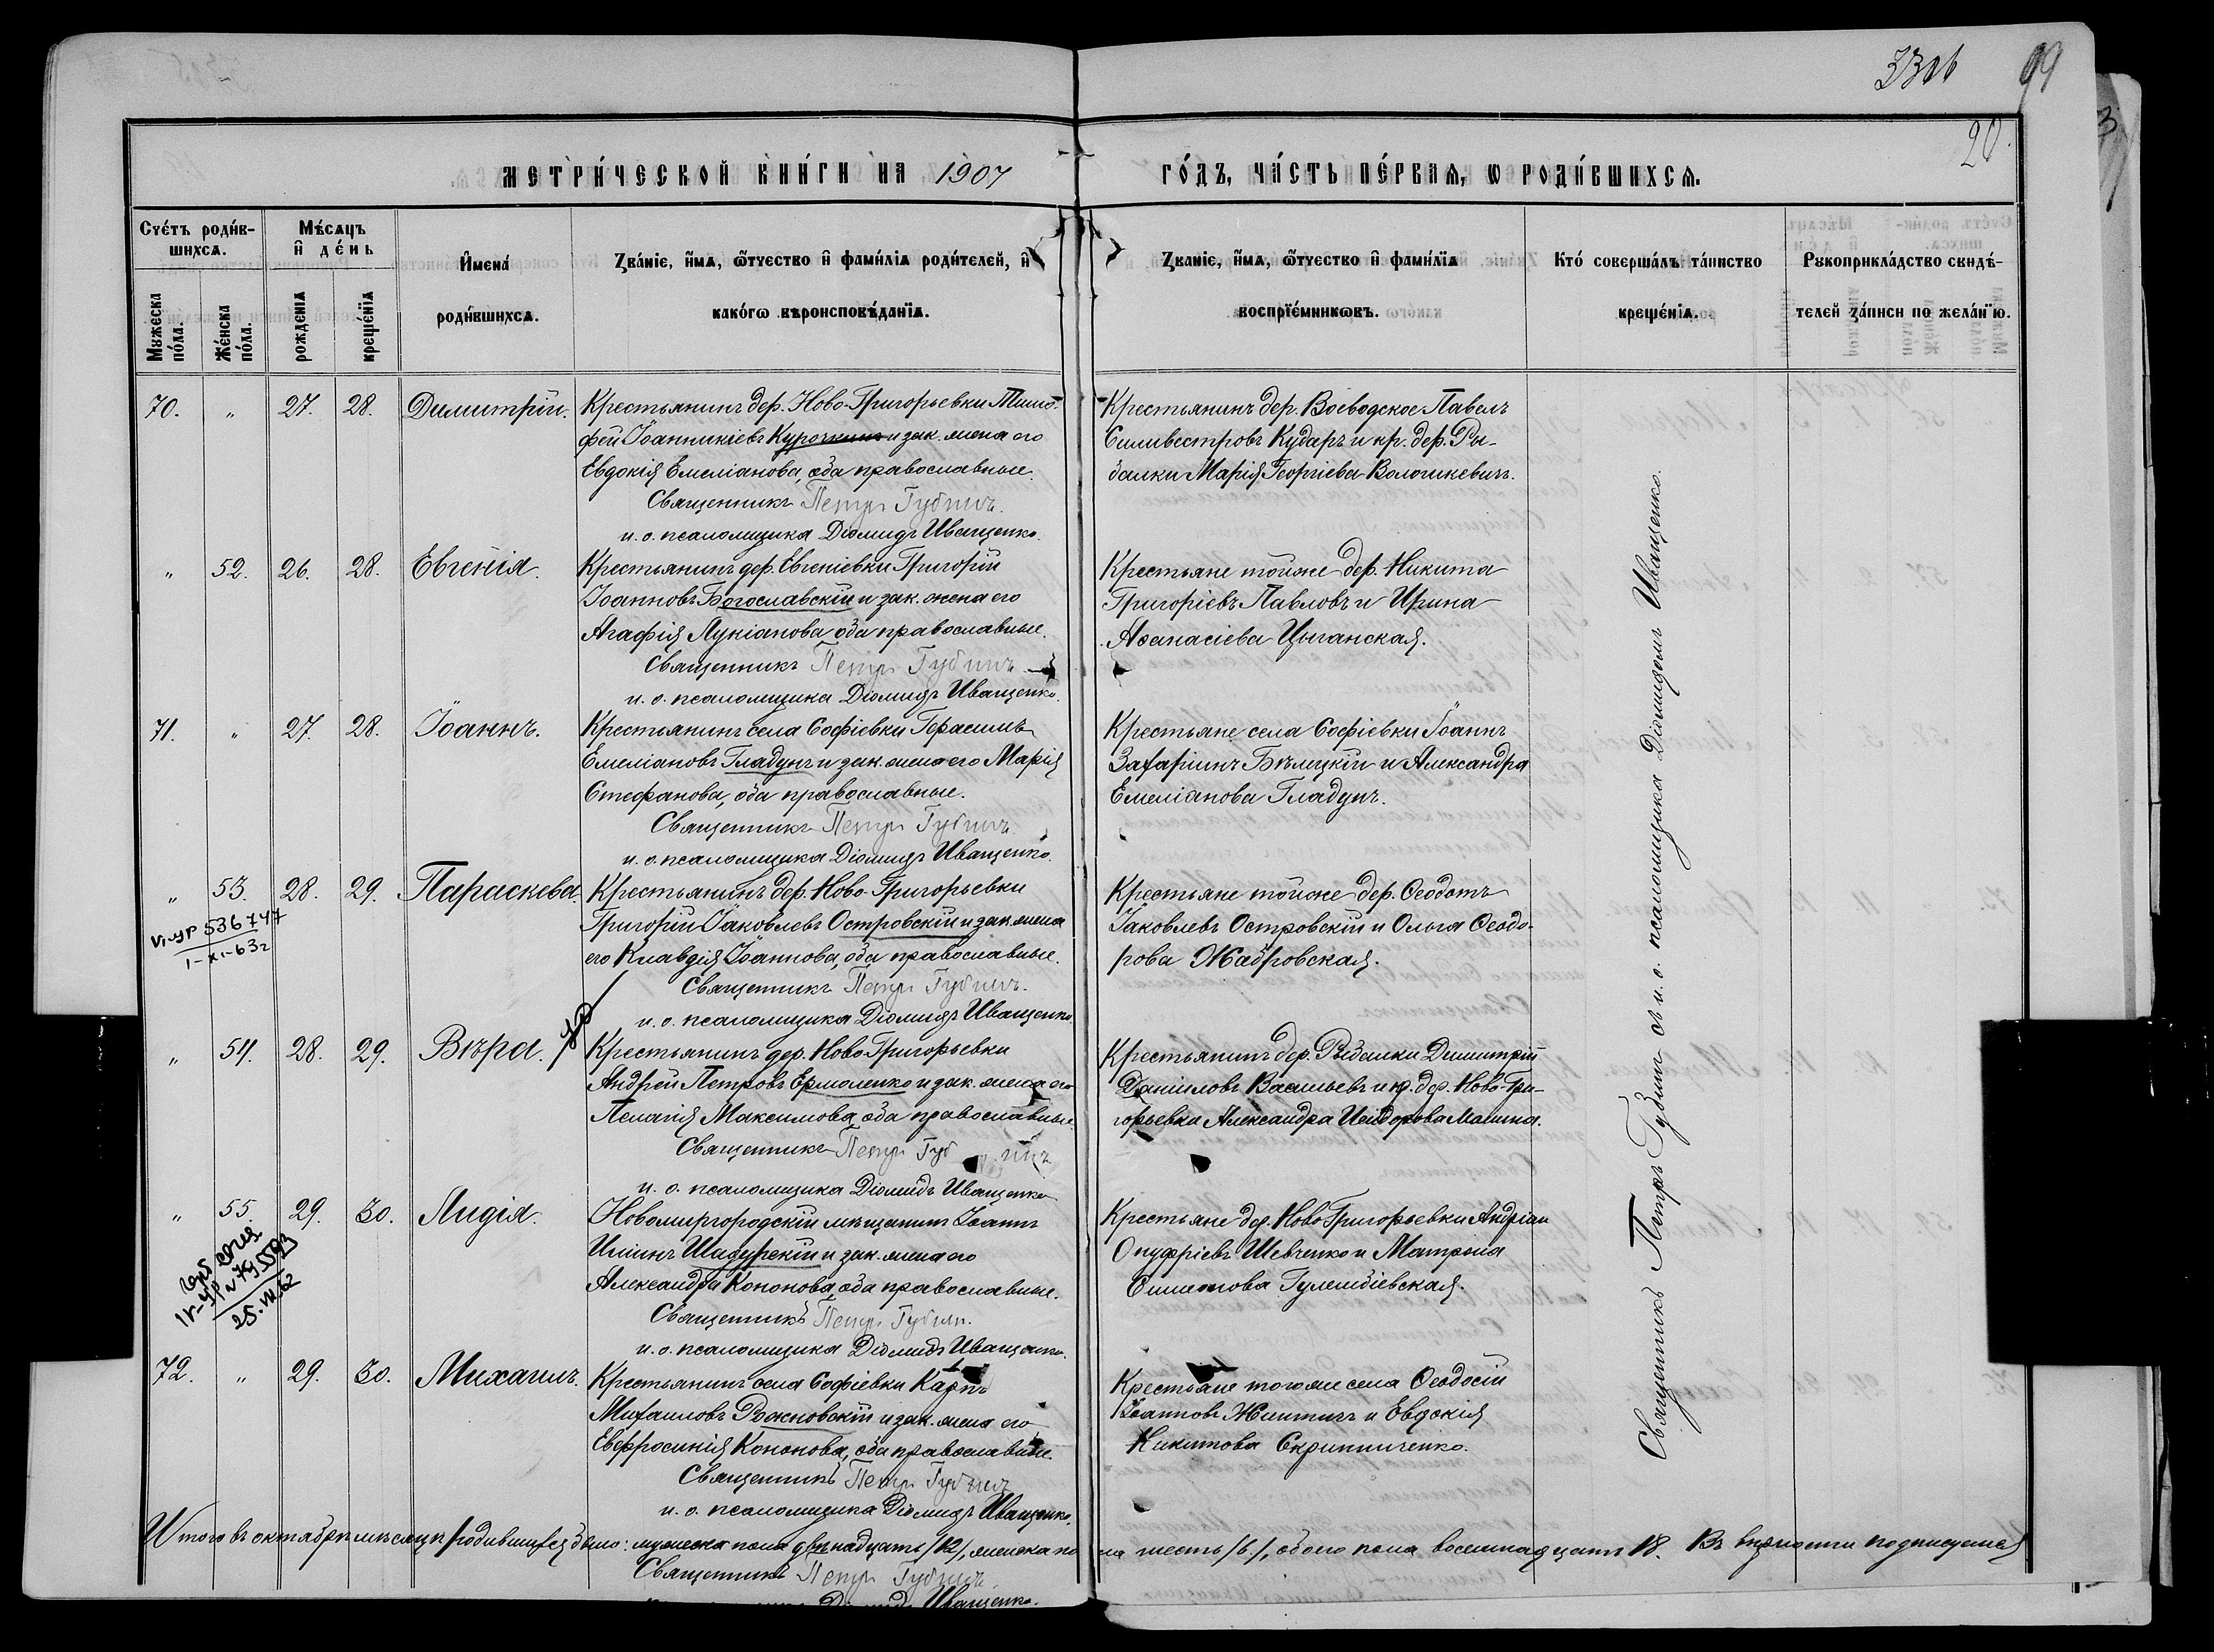 33об 99
20.
МЕТРИ́ЧЕСКОЙ КНИ́ГИ НА 1907 ГО́ДЪ, ЧА́СТЬ ПЕ́РВАЯ, Ѡ РОДИ́ВШИХСѦ.
Сче́тъ роди́в-
шихсѧ.
Мѣ́сѧцъ
и҆ де́нь
Мꙋжеска
по́ла.
Же́нска
по́ла.
рожде́нїѧ
креще́нїѧ
И҆мена́
роди́вшихсѧ.
Зва́нїе, и҆́мѧ, ѻ҆́тчество и҆ фами́лїѧ роди́телей, и҆
како́гѡ вѣроисповѣ́данїѧ.
Зва́нїе, и҆́мѧ, ѻ҆́тчество и҆ фами́лїѧ
воспрїе́мникѡвъ.
Кто́ соверша́лъ та́инство
креще́нїѧ.
Рꙋкоприкла́дство свидѣ́-
телей за́писи по жела́нїю.
70. „ 27. 28. Димитрій.
Крестьянинъ дер. Ново-Григорьевки Тимо-
фей Іоанникіевъ Курочкинъ и зак. жена его
Евдокія Емеліанова, оба православные.
Священникъ Петръ Губинъ.
и. о. псаломщика Діомидъ Иващенко.
Крестьянинъ дер. Воеводское Павелъ
Силивестровъ Кударъ и кр. дер. Ры-
балки Марія Георгіева Волошкевичъ.
„ 52. 26. 28. Евгенія.
Крестьянинъ дер. Евгеніевки Григорій
Іоанновъ Богославскій и зак. жена его
Агафія Лукіанова оба православные.
Священникъ Петръ Губинъ
и. о. псаломщика Діомидъ Иващенко.
Крестьяне тойже дер. Никита
Григоріевъ Павловъ и Ирина
Аѳанасіева Цыганская.
71. „ 27. 28. Іоаннъ.
Крестьянинъ села Софіевки Герасимъ
Емеліановъ Гладунъ и зак. жена его Марія
Стефанова, оба православные.
Священникъ Петръ Губинъ
и. о. псаломщика Діомидъ Иващенко.
Крестьяне села Софіевки Іоаннъ
Захаріинъ Бѣлицкій и Александра
Емеліанова Гладунъ.
„ 53. 28. 29. Параскева.
VI-УР 536747
1-XI-63г
Крестьянинъ дер. Ново-Григорьевки
Григорій Іаковлевъ Островскій и зак. жена
его Клавдія Іоаннова, оба православные.
Священникъ Петръ Губинъ.
и. о. псаломщика Діомидъ Иващенко.
Крестьяне тойже дер. Ѳеодотъ
Іаковлевъ Островскій и Ольга Ѳеодо-
рова Жабровская.
„ 54. 28. 29. Вѣра.
Крестьянинъ дер. Ново-Григорьевки
Андрей Петровъ Ермоленко и зак. жена его
Пелагія Максимова, оба православные.
Священникъ Петръ Губинъ
и. о. псаломщика Діомидъ Иващенко
Крестьянинъ дер. Рыбалки Димитрій
Даніиловъ Васильевъ и кр. дер. Ново-Гри-
горьевки Александра Исидорова Малина.
„ 55. 29. 30. Лидія.
25.VII.62
Новомиргородскій мѣщанинъ Іоаннъ
Иліинъ Шадурскій и зак. жена его
Александра Кононова, оба православные.
Священникъ Петръ Губинъ.
и. о. псаломщика Діомидъ Иващенко.
Крестьяне дер. Ново Григорьевки Андріан
Онуфріевъ Шевченко и Матрона
Симеонова Гулембіевская.
72. „ 29. 30. Михаилъ.
Крестьянинъ села Софіевки Карпъ
Михаиловъ Рожновскій и зак. жена его
Евфросинія Кононова, оба православные.
Священникъ Петръ Губинъ
и. о. псаломщика Діомидъ Иващенко.
Крестьяне тогоже села Ѳеодосій
Іоанновъ Жинтичъ и Евдокія
Никитова Скрипниченко.
Священникъ Петръ Губинъ съ и. о. псаломщика Діомидомъ Иващенко.
Итого въ октябрѣ мѣсяцѣ родившихся было: мужеска пола двѣнадцать /12/, женска пола шесть /6/, обоего пола восемнадцать 18. Въ вѣрности подписуемся
Священникъ Петръ Губинъ.
Діомидъ Иващенко.